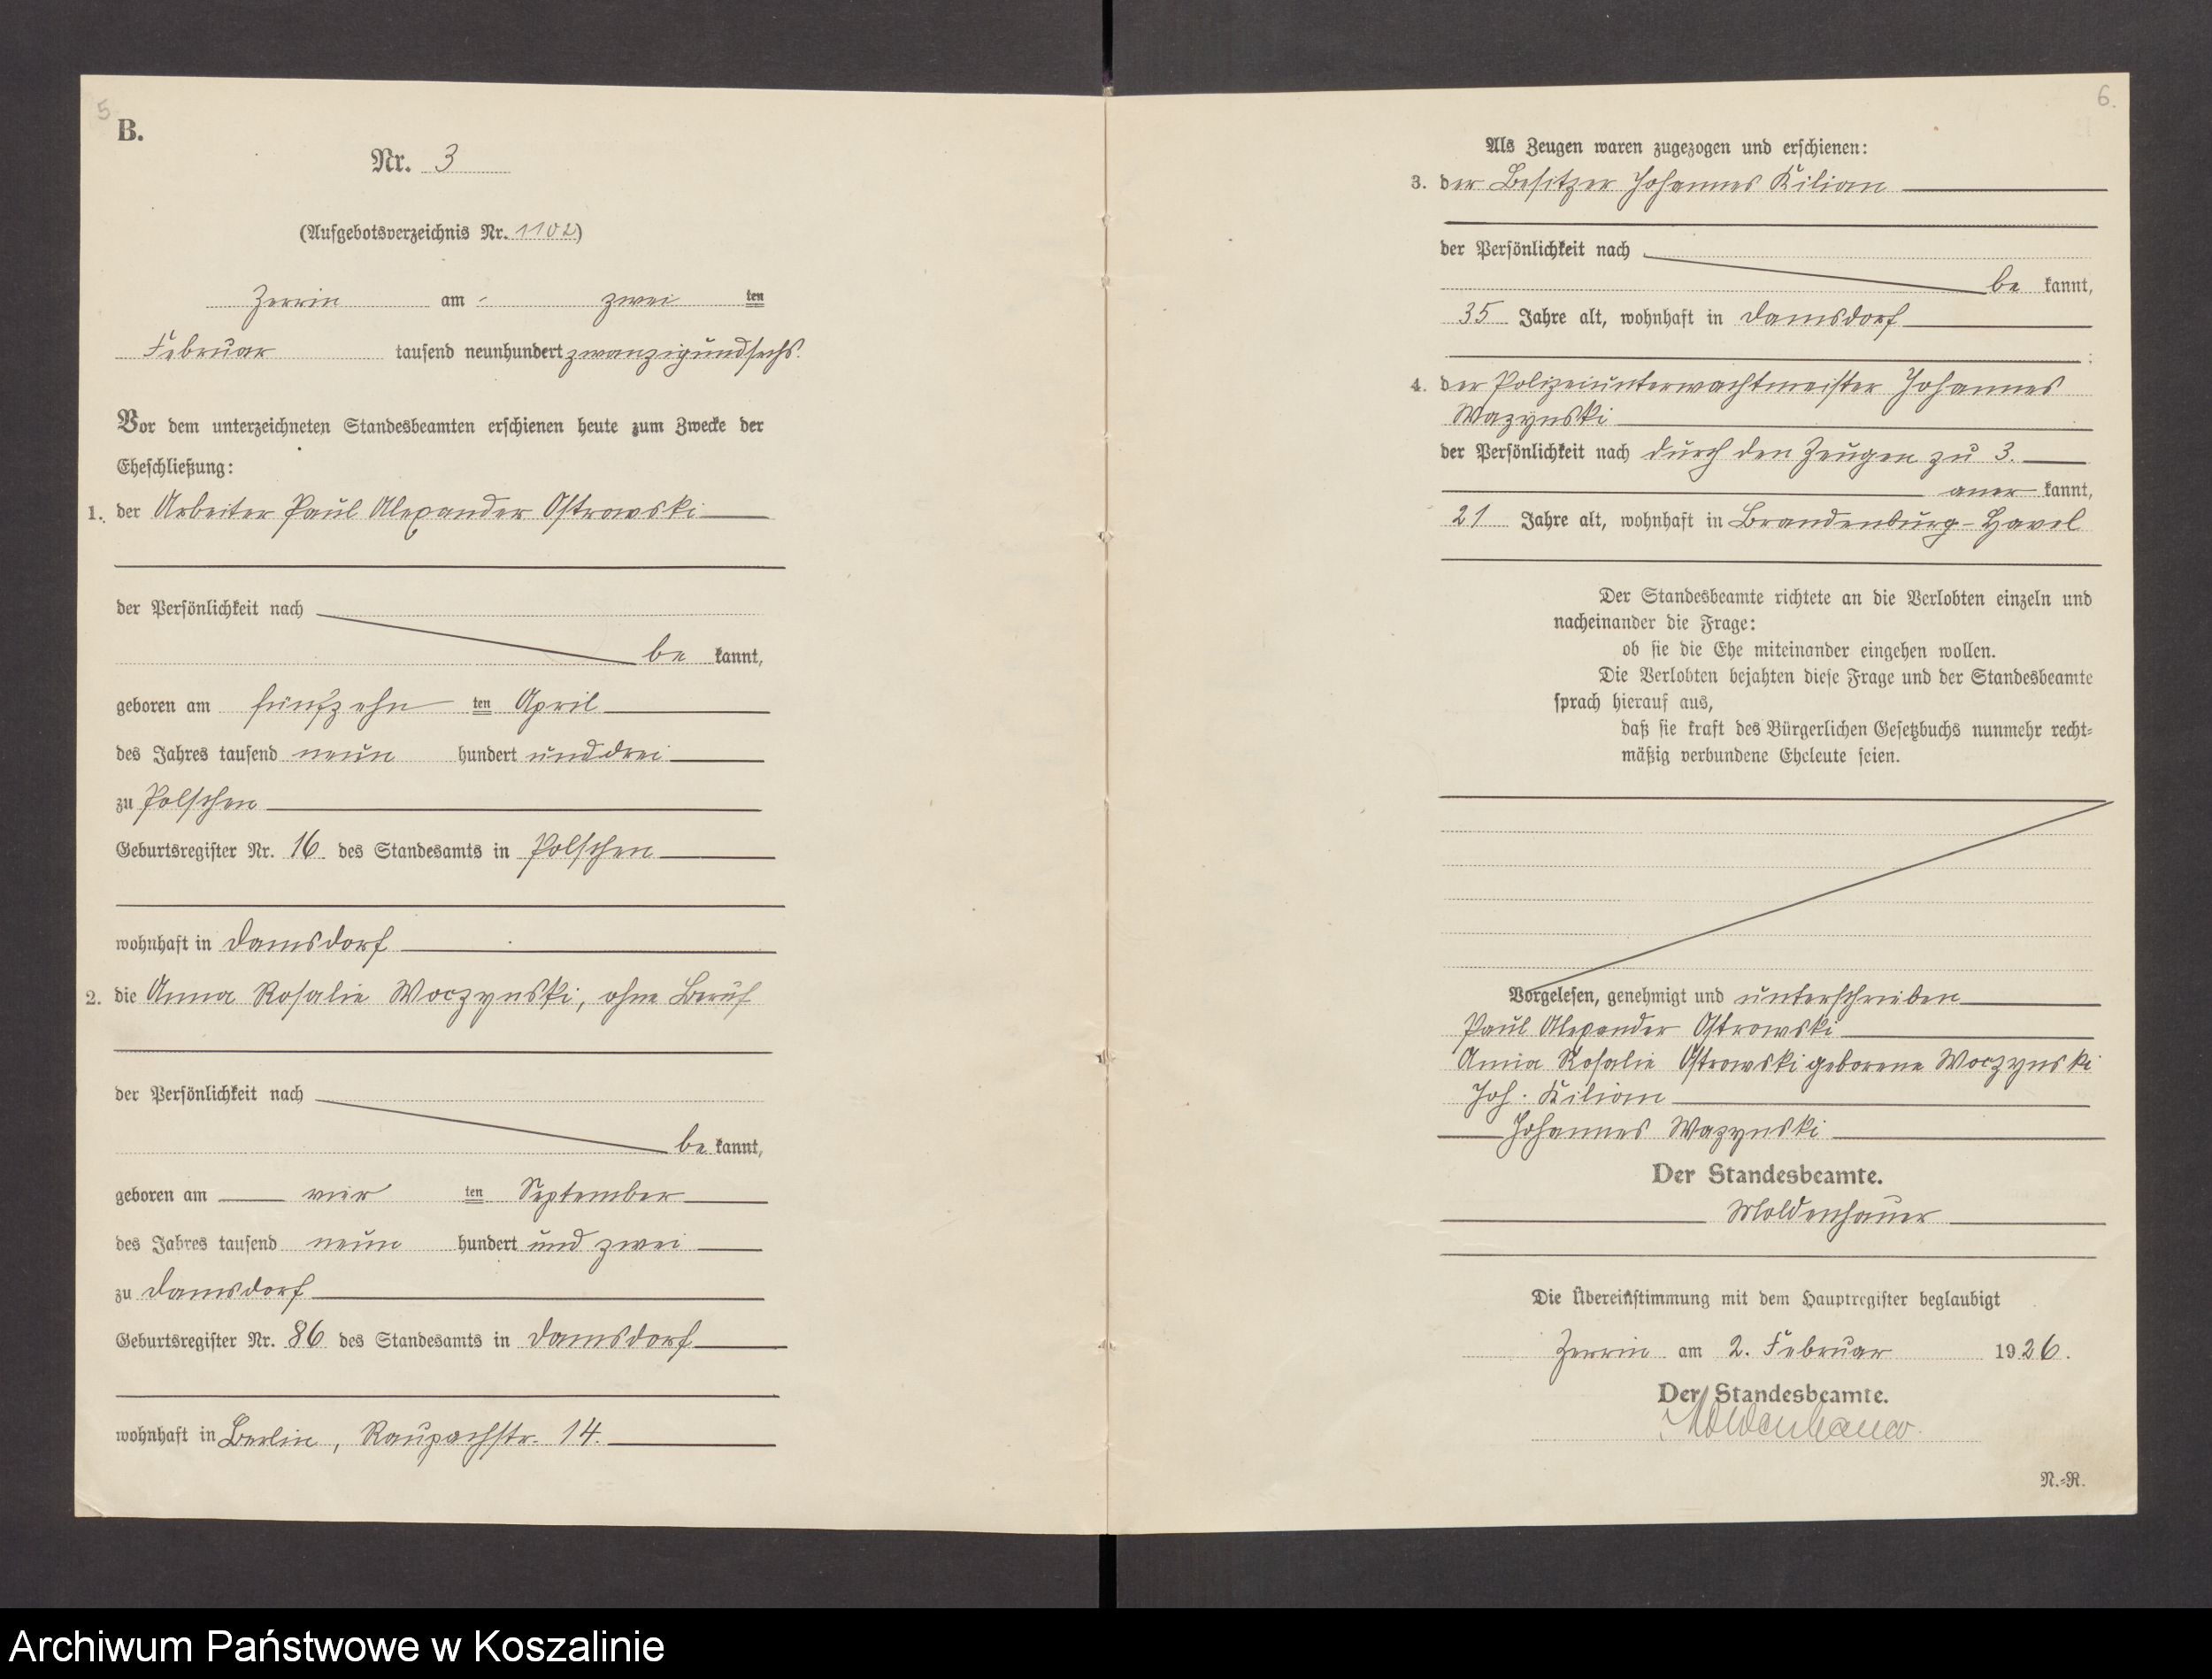 5
B.
Nr. 3
(Aufgebotsverzeichnis Nr. 1102)
Zerrin am zwei ten
Februar tausend neunhundert zwanzigundsechs.
Vor dem unterzeichneten Standesbeamten erschienen heute zum Zwecke der
Eheschließung:
1. der Arbeiter Paul Alexander Ostrowski
der Persönlichkeit nach
be kannt,
geboren am fünfzehn ten April
des Jahres tausend neun hundert und drei
zu Polschen
Geburtsregister Nr. 16 des Standesamts in Polschen
wohnhaft in Damsdorf
2. die Anna Rosalie Woczynski, ohne Beruf
der Persönlichkeit nach
be kannt,
geboren am vier ten September
des Jahres tausend neun hundert und zwei
zu Damsdorf
Geburtsregister Nr. 86 des Standesamts in Damsdorf
wohnhaft in Berlin, Raupachstr. 14.
6.
Als Zeugen waren zugezogen und erschienen:
3. der Besitzer Johannes Kilian
der Persönlichkeit nach
be kannt,
35 Jahre alt, wohnhaft in Damsdorf
;
4. der Polizeiunterwachtmeister Johannes
Wazynski
der Persönlichkeit nach durch den Zeugen zu 3.
aner kannt,
21 Jahre alt, wohnhaft in Brandenburg-Havel
Der Standesbeamte richtete an die Verlobten einzeln und
nacheinander die Frage:
ob sie die Ehe miteinander eingehen wollen.
Die Verlobten bejahten diese Frage und der Standesbeamte
sprach hierauf aus,
daß sie kraft des Bürgerlichen Gesetzbuchs nunmehr recht-
mäßig verbundene Eheleute seien.
Vorgelesen, genehmigt und unterschrieben
Paul Alexander Ostrowski
Anna Rosalie Ostrowski geborene Woczynski
Joh. Kilian
Johannes Wazynski
Der Standesbeamte.
Moldenhauer
Die Übereinstimmung mit dem Hauptregister beglaubigt
Zerrin am 2. Februar 1926.
Der Standesbeamte.
Moldenhauer.
N.-R.
Archiwum Państwowe w Koszalinie